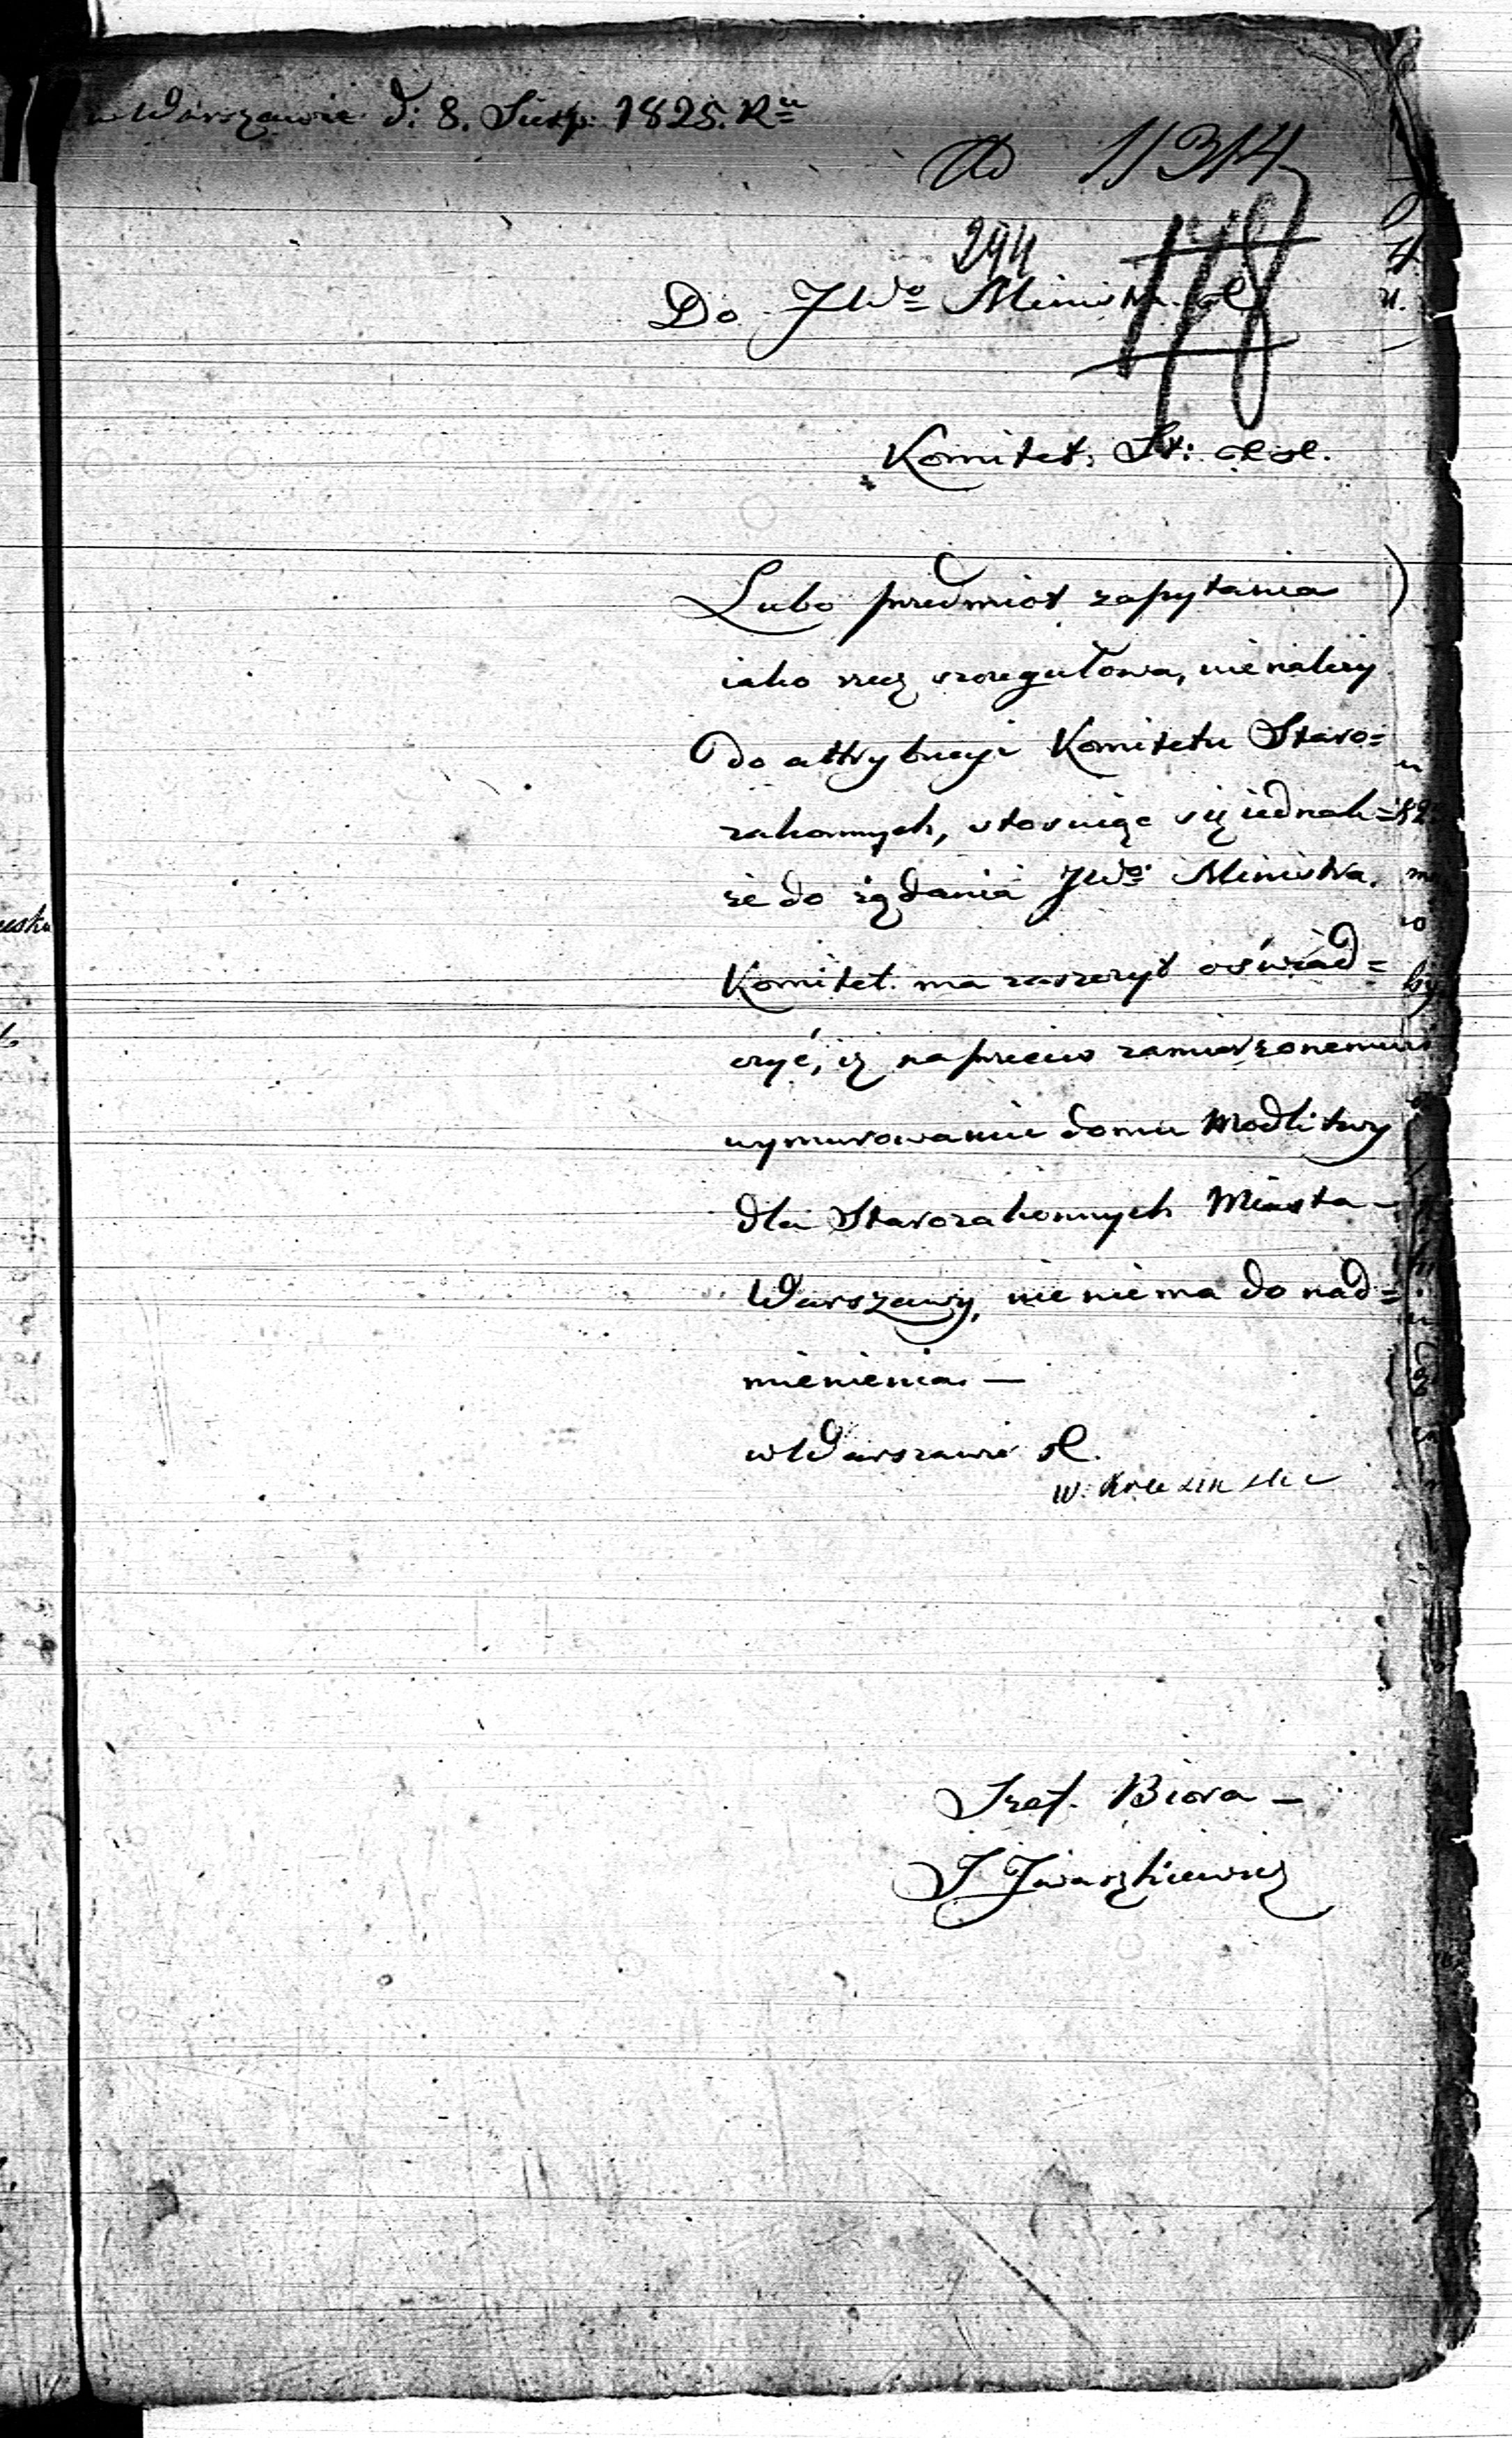 w Warszawie d: 8. Sierp: 1825. Ru
Ad 11314
294
178
Do JWo Ministra
Komitet: St:
Lubo przedmiot zapytania
iako rzecz szczegułowa, nie należy
do attrybucyi Komitetu Staro=
zakonnych, stosuiąc się iednak=
że do żądania JWo Ministra.
Komitet ma zaszczyt oświad=
czyć, iż naprzeciw zamierzonemu
wymurowaniu domu Modlitwy
dla Starozakonnych Miasta
Warszawy, nic niema do nad=
mienienia. —
w Warszawie
Szef. Biora —
J Jwaszkiewicz